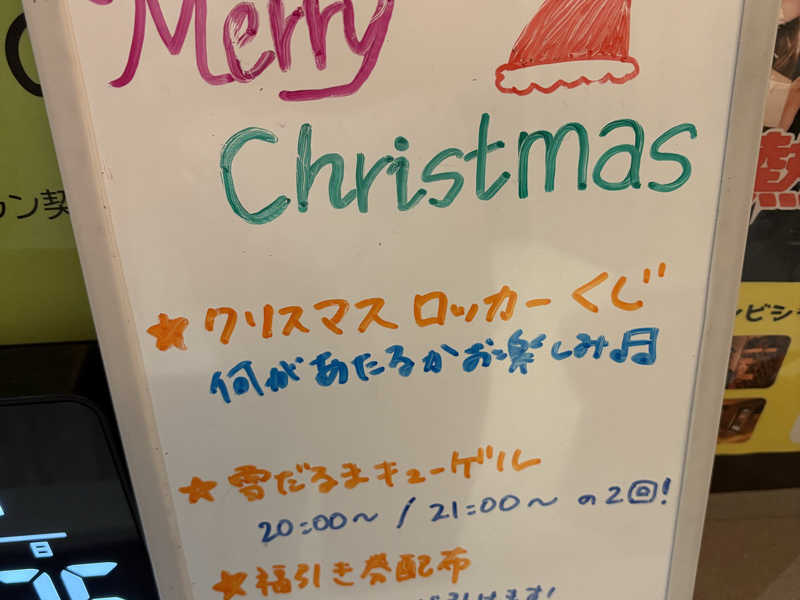 Merry
Christmas
★クリスマス ロッカーくじ
何があたるかお楽しみ♬
★雪だるまキューゲル
20:00〜 / 21:00〜 の2回!
★福引き券配布